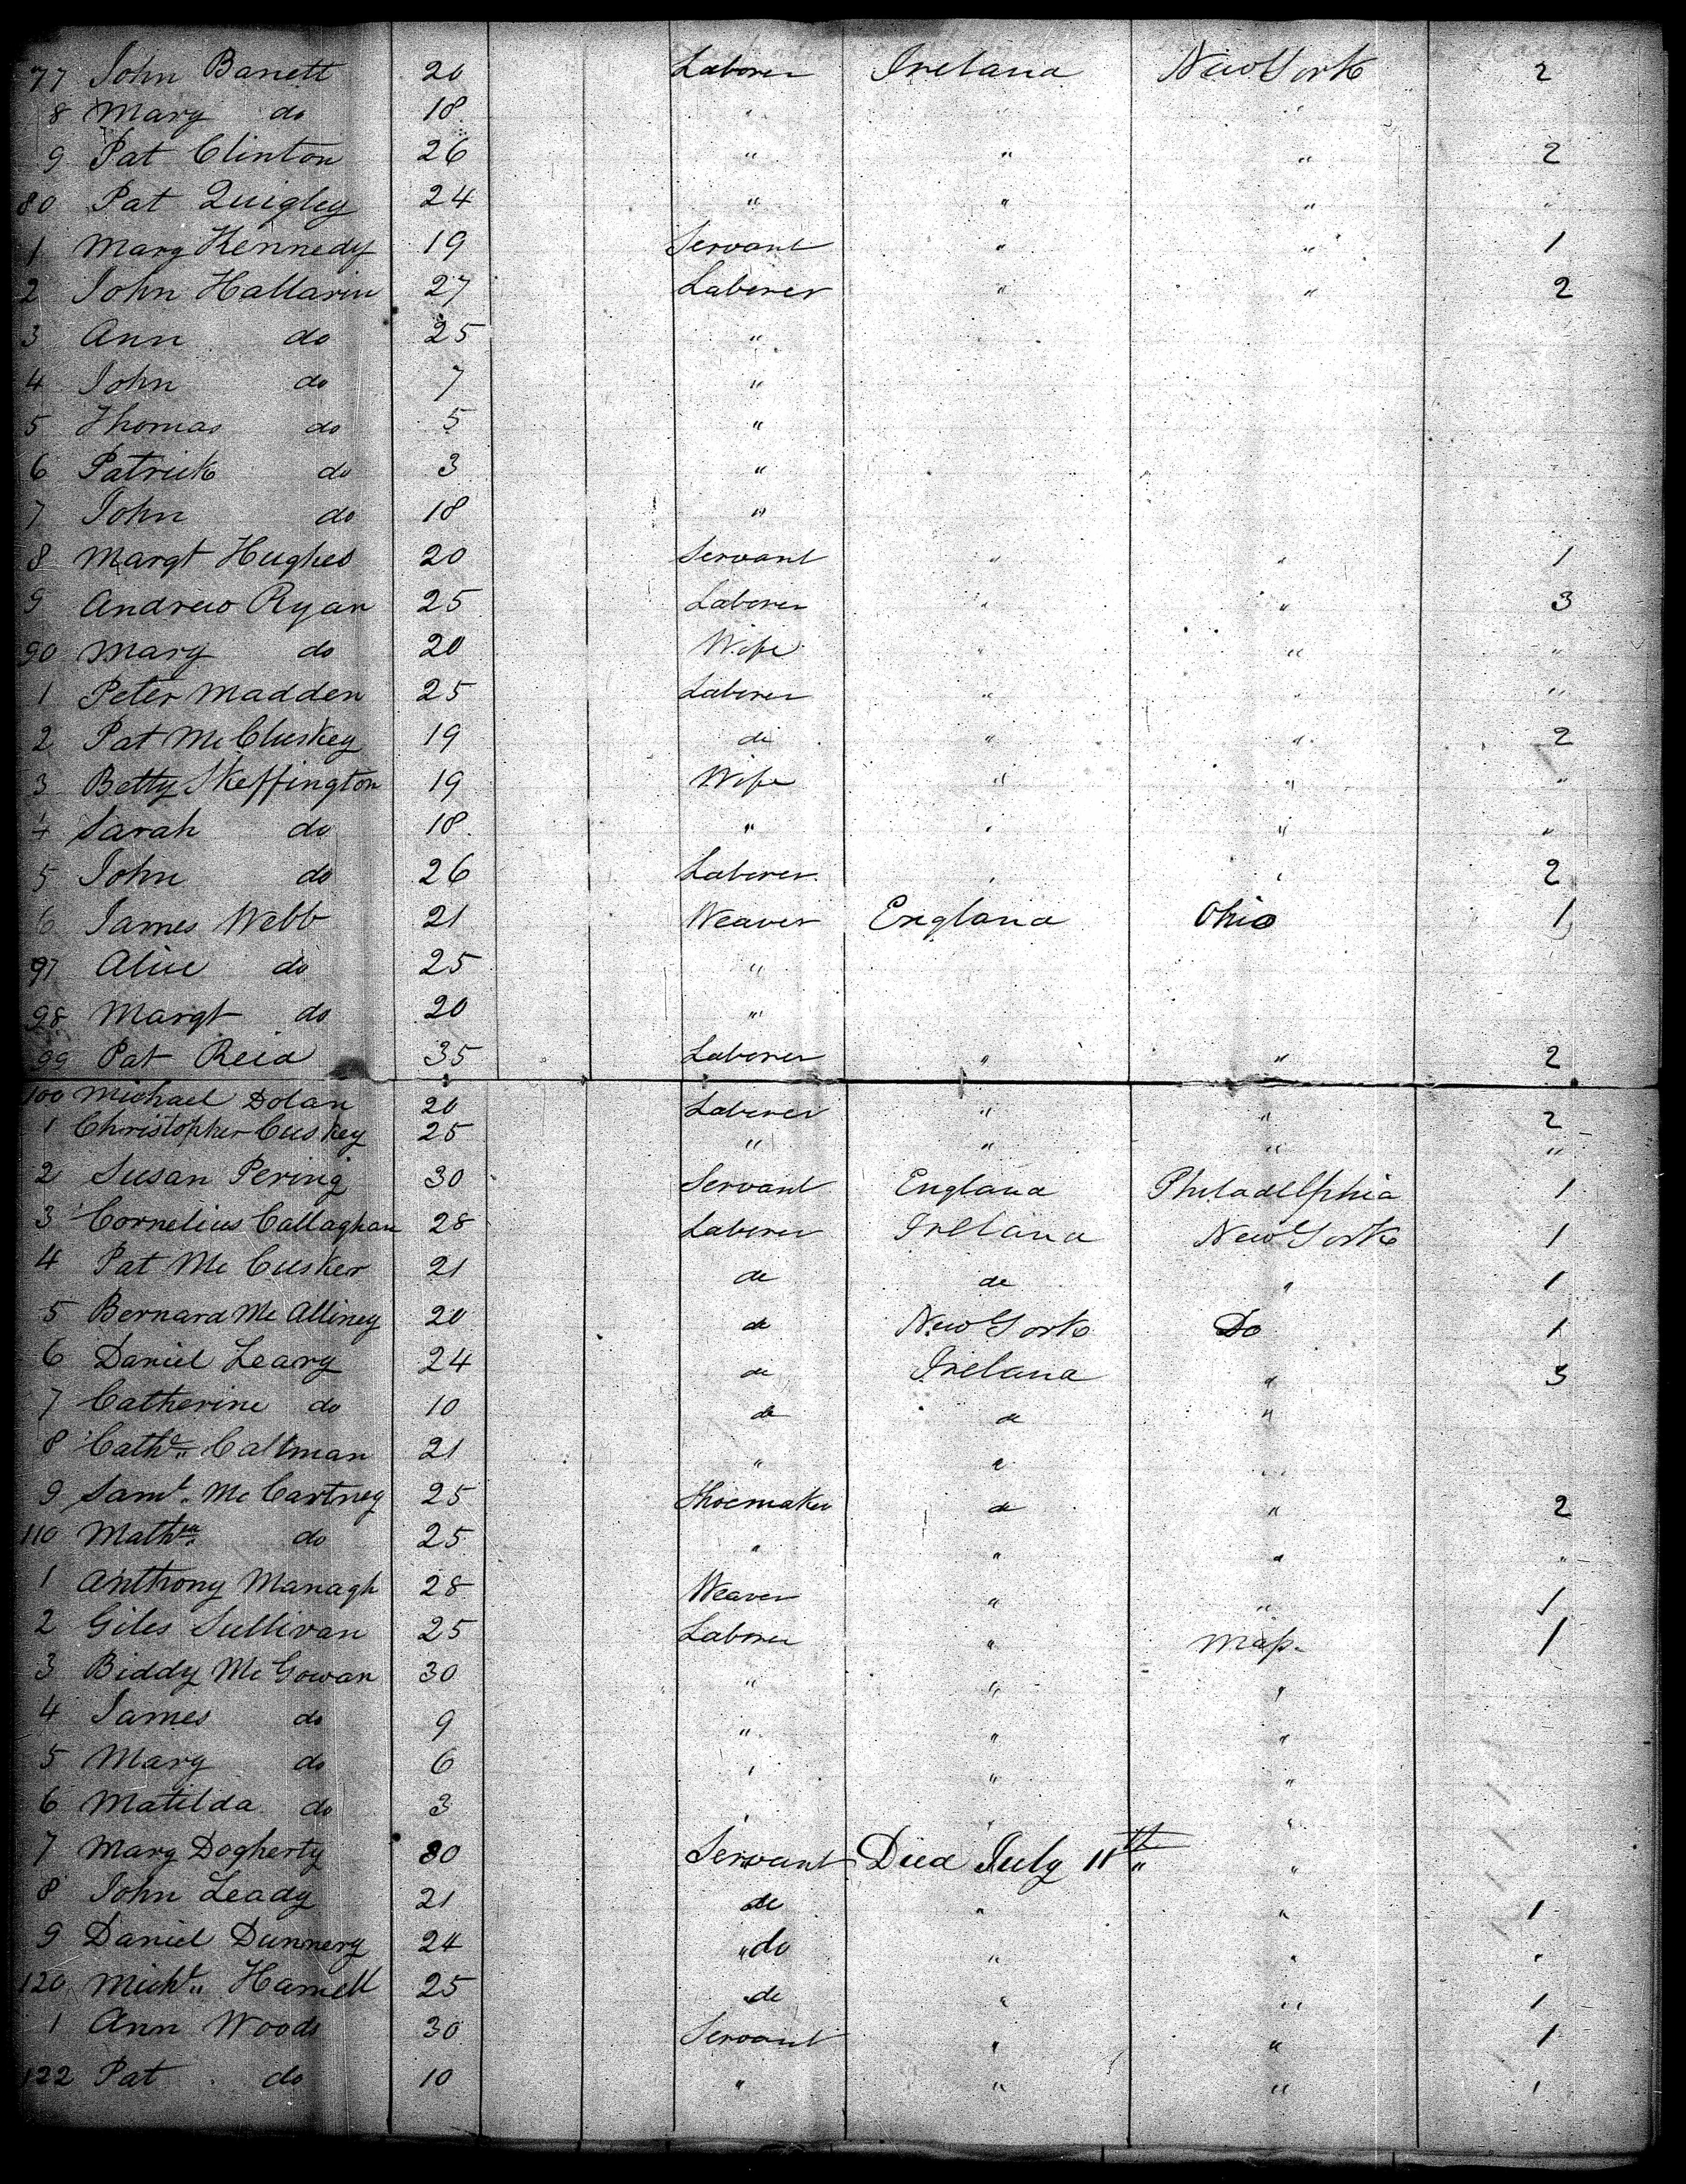 77 John Barrett 20 Laborer Ireland New York 2
8 Mary do 18 "
9 Pat Clinton 26 " " " 2
80 Pat Quigley 24 " " " "
1 Mary Kennedy 19 Servant " " 1
2 John Hallarin 27 Laborer " " 2
3 Ann do 25 "
4 John do 7 "
5 Thomas do 5 "
6 Patrick do 3 "
7 John do 18 "
8 Margt Hughes 20 Servant " " 1
9 Andrew Ryan 25 Laborer " " 3
90 Mary do 20 Wife " " "
1 Peter Madden 25 Laborer " " "
2 Pat McCluskey 19 do " " 2
3 Betty Skeffington 19 Wife " " "
4 Sarah do 18 " " " "
5 John do 26 Laborer " " 2
6 James Webb 21 Weaver England Ohio 1
97 Alice do 25 "
98 Margt do 20 "
99 Pat Reid 35 Laborer " " 2
100 Michael Dolan 20 Laborer " " 2
1 Christopher Cuskey 25 " " " "
2 Susan Pering 30 Servant England Philadelphia 1
3 Cornelius Callaghan 28 Laborer Ireland New York 1
4 Pat McCusker 21 do do " 1
5 Bernard Mc Alliney 20 do New York Do 1
6 Daniel Leary 24 do Ireland " 3
7 Catherine do 10 do do "
8 Cathe Caltman 21 " "
9 Saml. McCartney 25 Shoemaker do " 2
110 Mathw do 25 " " " "
1 Anthony Managh 28 Weaver " " 1
2 Giles Sullivan 25 Laborer " Mass. 1
3 Biddy McGowan 30 " " "
4 James do 9 " " "
5 Mary do 6 " " "
6 Matilda do 3 " " "
7 Mary Dogherty 30 Servant Died July 11th " "
8 John Leady 21 do " " 1
9 Daniel Dunnery 24 " do " " "
120 Michl. Hamell 25 do " " 1
1 Ann Woods 30 Servant " " 1
122 Pat do 10 " " " "